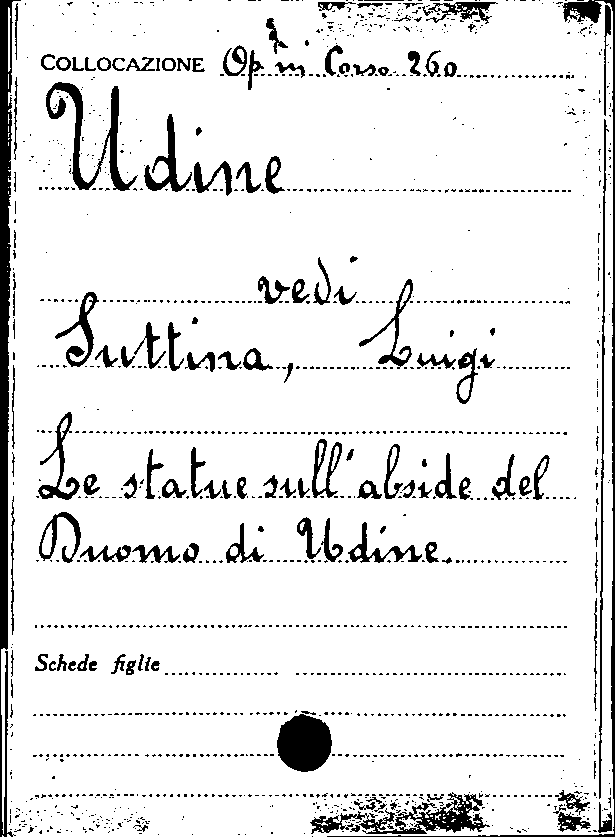 COLLOCAZIONE Op. in Corso 260
Udine
vedi
Suttina, Luigi
Le statue sull'abside del
Duomo di Udine.
Schede figlie